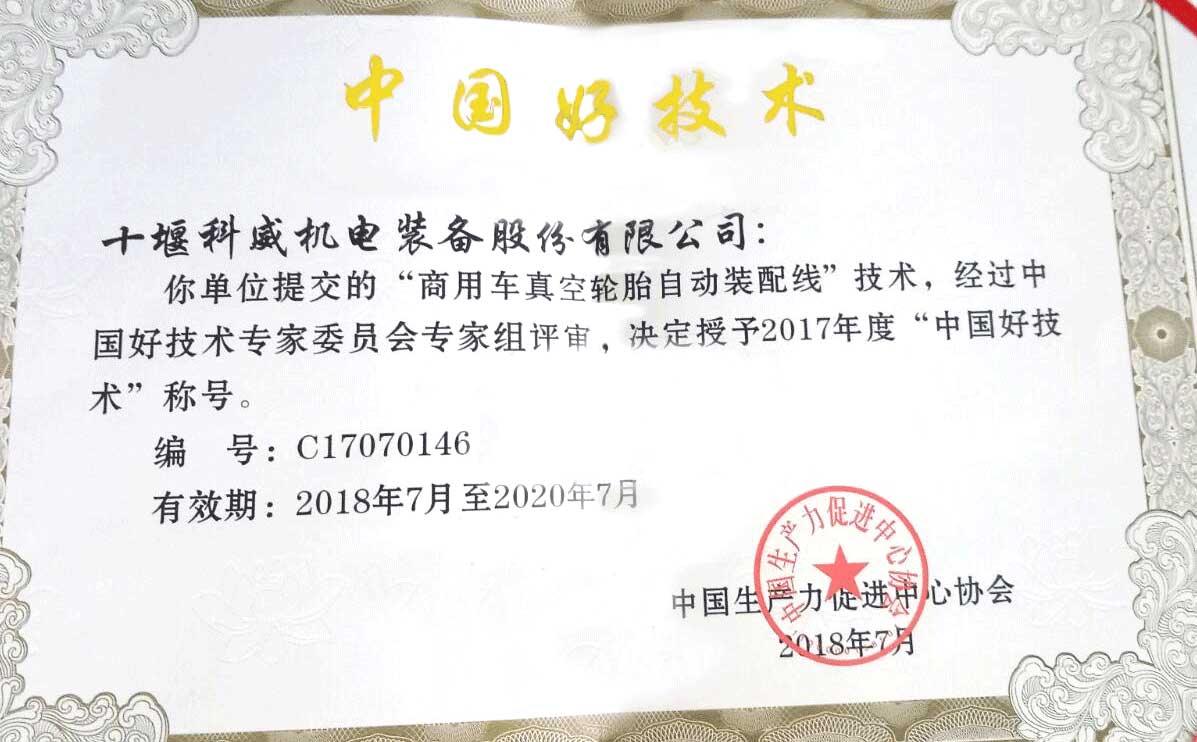 中国好技术
十堰科威机电装备股份有限公司：
你单位提交的“商用车真空轮胎自动装配线”技术，经过中
国好技术专家委员会专家组评审，决定授予2017年度“中国好技
术”称号。
编 号：C17070146
有效期：2018年7月至2020年7月
中国生产力促进中心协会
中国生产力促进中心协会
2018年7月